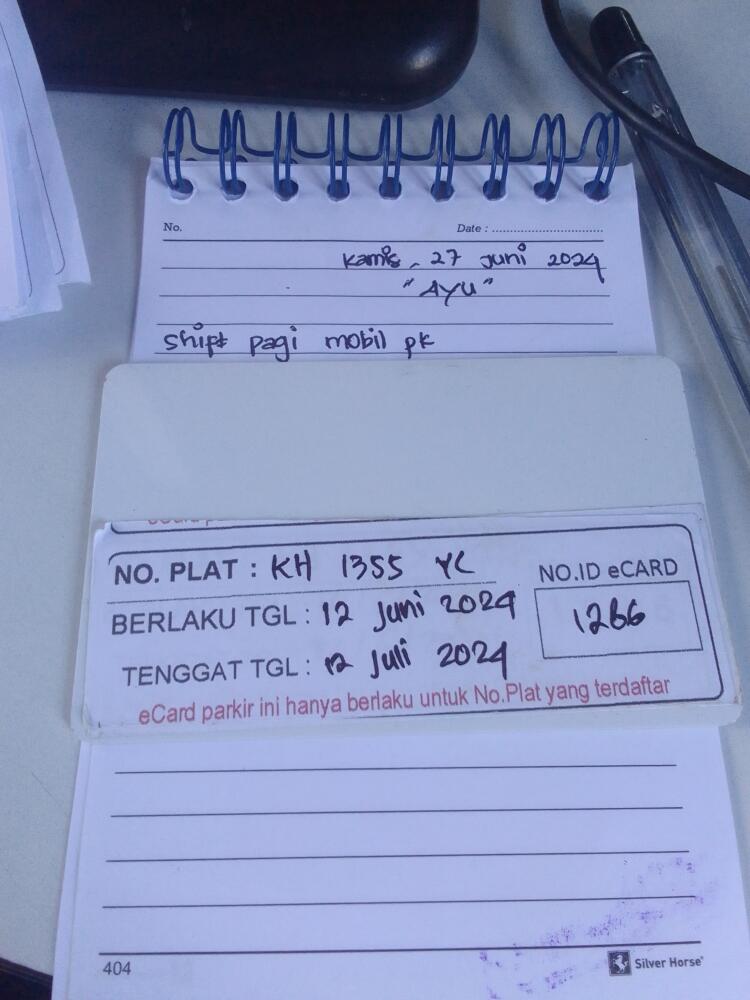 No.
Date : ................................
Kamis, 27 Juni 2024
"AYU"
Shift pagi mobil pk
NO. PLAT : KH 1355 YC
NO.ID eCARD
BERLAKU TGL : 12 Juni 2024
1266
TENGGAT TGL : 12 Juli 2024
eCard parkir ini hanya berlaku untuk No.Plat yang terdaftar
404
Silver Horse